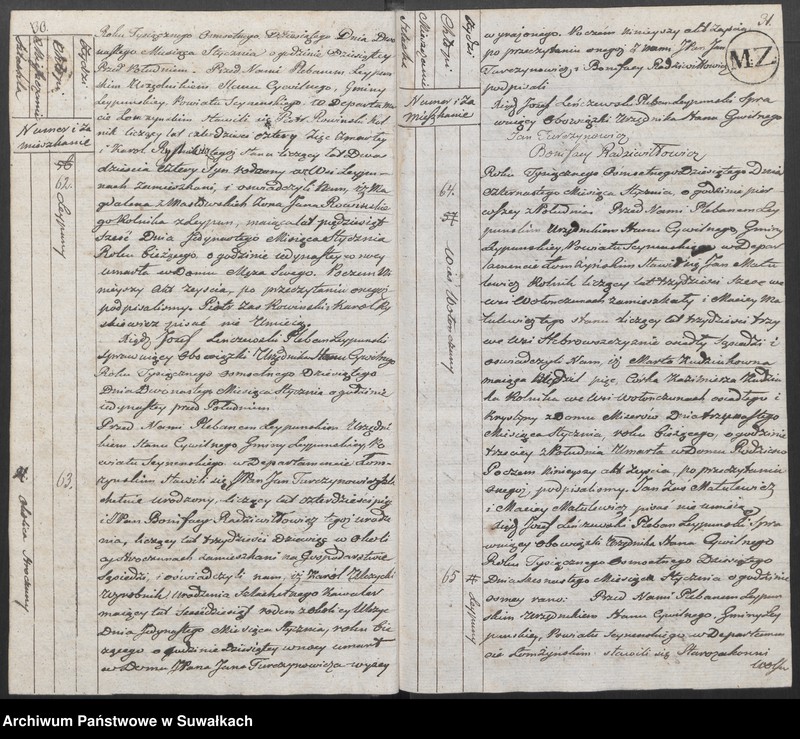 30.
Żydzi
Chłopi
Mieszczanie
Szlachta
Numer i Za
mieszkanie
62.
Leypuny
63.
Okolica Stroczuny
Roku Tysiącznego Osmsetnego Dziesiątego Dnia Dwu
nastego Miesiąca Stycznia o godzinie Dziesiątey
Przed Południem. Przed Nami Plebanem Leypuń
skim Urzędnikiem Stanu Cywilnego, Gminy
Leypuńskiey, Powiatu Seyneńskiego w Departamen
cie Łomżyńskim stawili się Piotr Rowiński Rol
nik liczący lat czterdzieści cztery
i Karol tegoż Stanu liczący lat Dwa
dzieścia cztery w Wsi Leypu
nach zamieszkani, i oświadczyli Nam, iż Ma
gdalena z Żona Jana
go Rolnika z Leypun, maiąca lat pięćdziesiąt
sześć Dnia Jedynastego Miesiąca Stycznia
Roku bieżącego, o godzinie iedynastey w nocy
umarła w Domu Męża swego. Poczem Ni
nieyszy akt zeyścia, po przeczytaniu onegoż
podpisaliśmy. Piotr zaś Rowiński, Karol
pisać nie umieią.
Xiądz Józef Lenczewski Pleban Leypuński
Sprawuiący Obowiązki Urzędnika Stanu Cywilnego
Roku Tysiącznego Osmsetnego Dziesiątego
Dnia Dwunastego Miesiąca Stycznia o godzinie
iedynastey przed Południem
Przed Nami Plebanem Leypuńskim Urzędni
kiem Stanu Cywilnego Gminy Leypuńskiey, Po
wiatu Seyneńskiego w Departamencie Łom
żyńskim stawili się JPan Jan Turczynowicz Szla
chetnie urodzony, liczący lat czterdzieści pięć
i JPan Bonifacy Radziwiłłowicz tegoż urodze
nia, liczący lat trzydzieści dziewięć w Okoli
cy Stroczunach zamieszkani na Gospodarstwie
Sąsiedzi, i oświadczyli nam, iż Karol
Wyrobnik Urodzenia Szlachetnego Kawaler
maiący lat sześćdziesiąt, rodem z okolicy
Dnia Jedynastego Miesiąca Stycznia, roku bie
żącego o godzinie dziesiątey w nocy umarł
w Domu JPana Jana Turczynowicza wyżey
31.
Żydzi
Chłopi
Mieszczanie
Szlachta
Numer i Za
mieszkanie
64.
Wieś Wołonczuny
65
Leypuny
M.Z.
wyrażonego. Poczem Ninieyszy akt Zeyścia
po przeczytaniu onegoż z nami JPan Jan
Turczynowicz i Bonifacy Radziwiłłowicz
podpisali
Xiądz Józef Lenczewski Pleban Leypuński Spra
wuiący Obowiązki Urzędnika Stanu Cywilnego
Jan Turczynowicz
Bonifacy Radziwiłłowicz
Roku Tysiącznego Osmsetnego Dziesiątego Dnia
Czternastego Miesiąca Stycznia, o godzinie pier
wszey z Południa. Przed Nami Plebanem Ley
puńskim Urzędnikiem Stanu Cywilnego, Gminy
Leypuńskiey, Powiatu Seyneńskiego w Depar
tamencie Łomżyńskim Stawił się Jan Matu
lewicz Rolnik liczący lat trzydzieści sześć we
wsi Wołonczunach zamieszkały i Maciey Ma
tulewicz tego Stanu liczący lat trzydzieści trzy
we Wsi osiadły. Sąsiedzi i
oświadczyli Nam, iż Marta Kudziukowna
maiąca pięć, Córka Kazimierza Kudziu
ka Rolnika we Wsi Wołonczunach osiadłego i
Krystyny z Domu Dnia trzynastego
Miesiąca Stycznia, roku bieżącego, o godzinie
trzeciey z Południa Umarła w Domu Rodziców
Poczem Ninieyszy akt Zeyścia, po przeczytaniu
onegoż, podpisaliśmy. Jan Zaś Matulewicz
i Maciey Matulewicz pisać nie umieią
Xiądz Józef Lenczewski Pleban Leypuński Spra
wuiący Obowiązki Urzędnika Stanu Cywilnego
Roku Tysiącznego Osmsetnego Dziesiątego
Dnia Miesiąca Stycznia o godzinie
osmey rano: Przed Nami Plebanem Leypuń
skim Urzędnikiem Stanu Cywilnego, Gminy Ley
puńskiey, Powiatu Seyneńskiego, w Departamen
cie Łomżyńskim stawili się Starozakonni
Archiwum Państwowe w Suwałkach